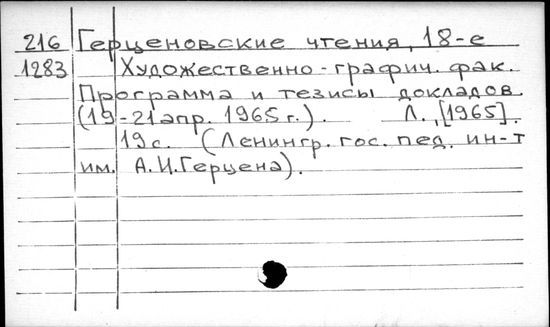 216 Герценовские чтения, 18-е
1283 Художественно-графич. фак.
Программа и тезисы докладов.
(19-21 апр. 1965 г.). Л., [1965].
19 с. (Ленингр. гос. пед. ин-т
им. А.И.Герцена).